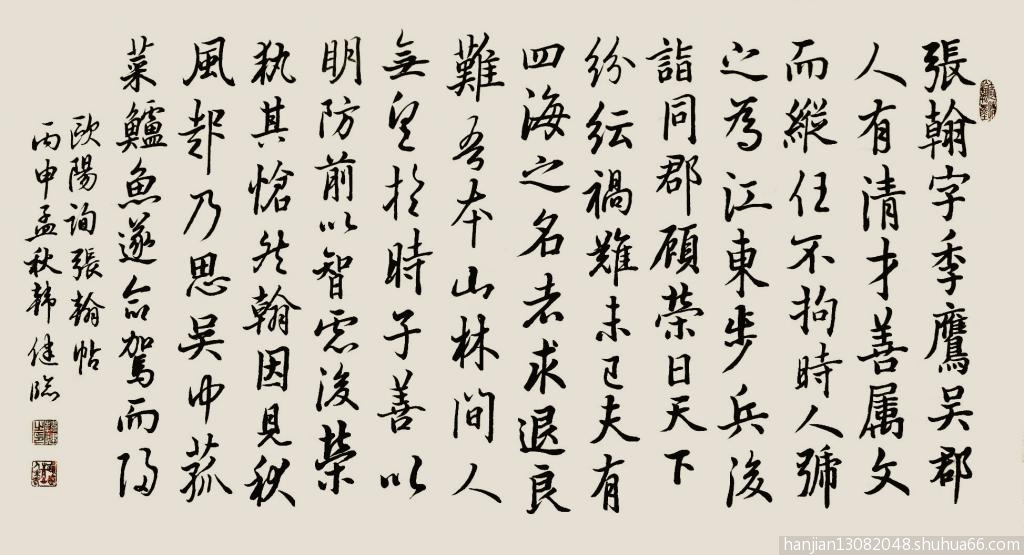 張翰字季鷹吳郡
人有清才善属文
而縱任不拘時人號
之為江東步兵後
詣同郡顧榮曰天下
紛紜禍難未已夫有
四海之名者求退良
難吾本山林間人
無望於時子善以
明防前以智慮後榮
執其愴然翰因見秋
風起乃思吳中菰
菜鱸魚遂命駕而歸
歐陽詢張翰帖
丙申孟秋韩健臨
hanjian13082048.shuhua66.com